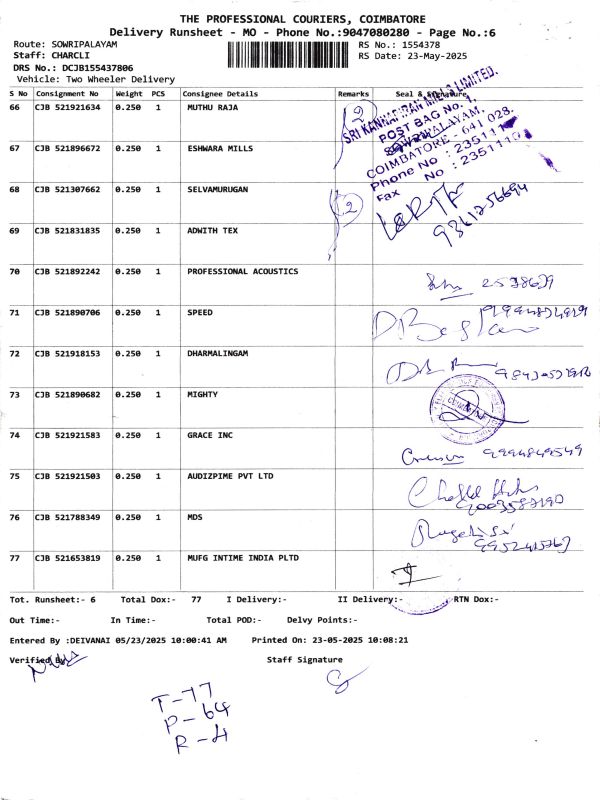 THE PROFESSIONAL COURIERS, COIMBATORE
Delivery Runsheet - MO - Phone No.:9047080280 - Page No.:6
Route: SOWRIPALAYAM RS No.: 1554378
Staff: CHARCLI RS Date: 23-May-2025
DRS No.: DCJB155437806
Vehicle: Two Wheeler Delivery
S No Consignment No Weight PCS Consignee Details Remarks Seal & Signature
66 CJB 521921634 0.250 1 MUTHU RAJA 2
SRI KANNAPIRAN MILLS LIMITED.
POST BAG No. 1,
SOWRIPALAYAM,
COIMBATORE - 641 028.
Phone No : 235111
Fax No : 2351110
67 CJB 521896672 0.250 1 ESHWARA MILLS
68 CJB 521307662 0.250 1 SELVAMURUGAN 2
69 CJB 521831835 0.250 1 ADWITH TEX
70 CJB 521892242 0.250 1 PROFESSIONAL ACOUSTICS
71 CJB 521890706 0.250 1 SPEED
72 CJB 521918153 0.250 1 DHARMALINGAM
73 CJB 521890682 0.250 1 MIGHTY
74 CJB 521921583 0.250 1 GRACE INC 9994849549
75 CJB 521921503 0.250 1 AUDIZPIME PVT LTD
76 CJB 521788349 0.250 1 MDS
77 CJB 521653819 0.250 1 MUFG INTIME INDIA PLTD
Tot. Runsheet:- 6 Total Dox:- 77 I Delivery:- II Delivery:- RTN Dox:-
Out Time:- In Time:- Total POD:- Delvy Points:-
Entered By :DEIVANAI 05/23/2025 10:00:41 AM Printed On: 23-05-2025 10:08:21
Verified By Staff Signature
T-77
P-64
R-4